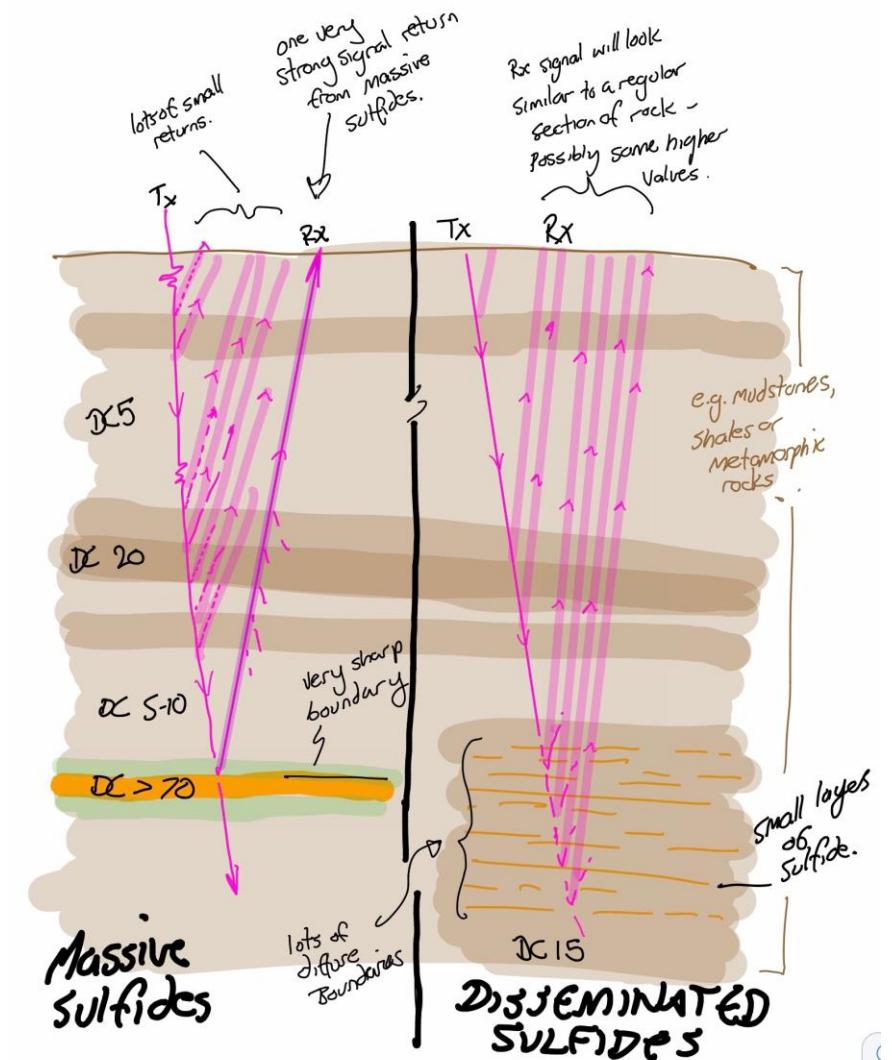 lots of small
returns.
one very
strong signal return
from Massive
sulfides.
Rx signal will look
similar to a regular
section of rock -
possibly some higher
values.
Tx
Rx
Tx
Rx
DC5
DC 20
DC 5-10
very sharp
boundary
DC > 70
e.g. mudstones,
shales or
metamorphic
rocks
small layes
of
sulfide.
lots of
diffuse
Boundaries
DC 15
Massive
Sulfides
DISSEMINATED
SULFIDES